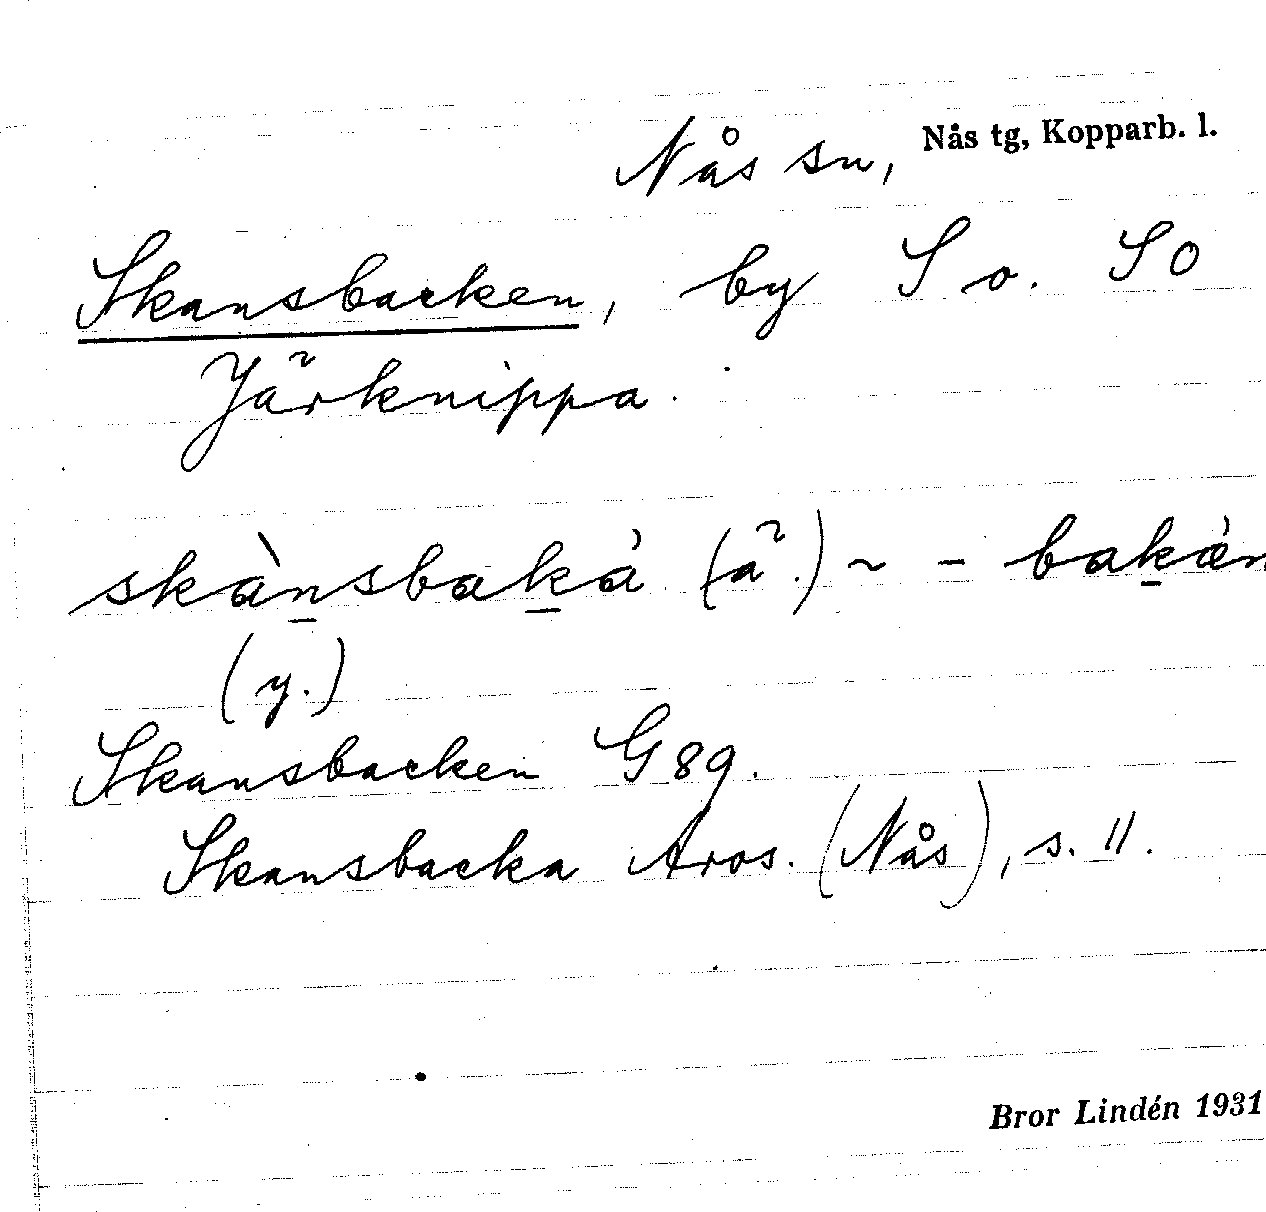 Nås sn, Nås tg, Kopparb. l.
Skansbacken, by S o. SO
Järknippa.
skànsbakà (ä.) ~ - bakèn
(y.)
Skansbacken G 89.
Skansbacka Aros. (Nås), s. 11.
Bror Lindén 1931